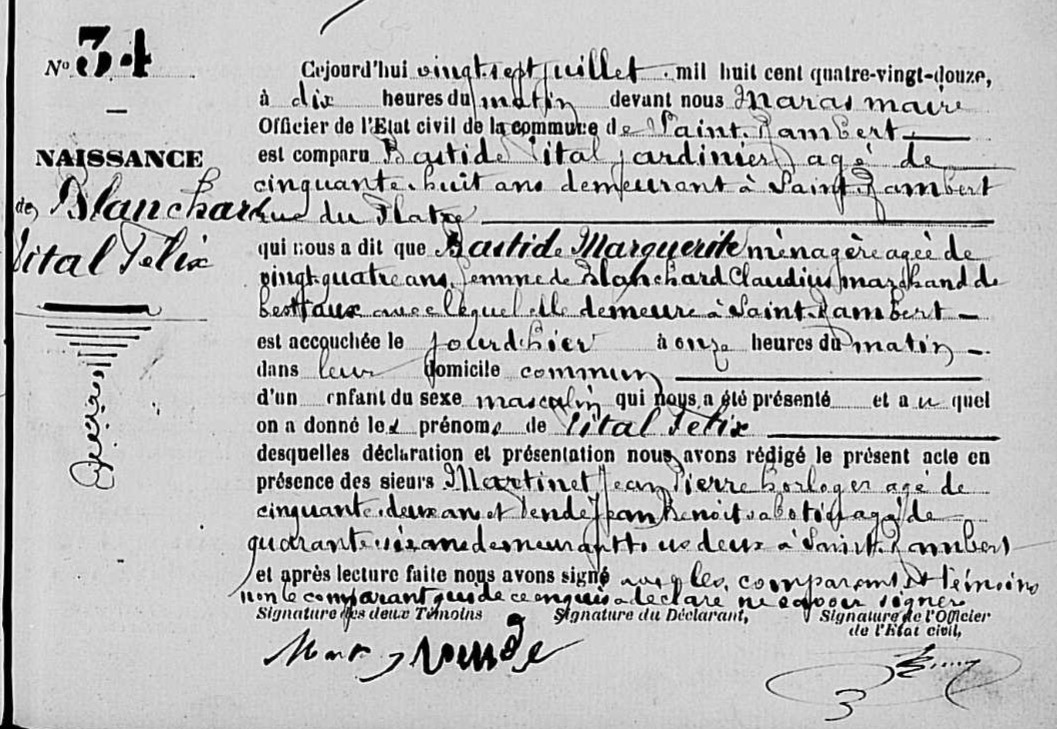 N° 34
NAISSANCE
de Blanchard
Vital Felix
Cejourd'hui vingt-sept juillet mil huit cent quatre-vingt-douze,
à dix heures du matin devant nous Maras maire
Officier de l'Etat civil de la commune de Saint-Rambert
est comparu Bastide Vital jardinier agé de
cinquante-huit ans demeurant à Saint-Rambert
rue du Platre
qui nous a dit que Bastide Marguerite ménagère agée de
vingt-quatre ans, femme de Blanchard Claudius marchand de
bestiaux avec lequel elle demeure à Saint-Rambert
est accouchée le jourd'hier à onze heures du matin
dans leur domicile commun
d'un enfant du sexe masculin qui nous a été présenté et au quel
on a donné les prénoms de Vital Felix
desquelles déclaration et présentation nous avons rédigé le présent acte en
présence des sieurs Martinet Jean Pierre horloger agé de
cinquante-deux ans et Jean Benoit sabotier agé de
quarante six ans demeurant tous deux à Saint-Rambert
et après lecture faite nous avons signé avec les comparans et témoins
non le comparant qui de ce enquis a déclaré ne savoir signer
Signature des deux Témoins Signature du Déclarant, Signature de l'Officier
de l'Etat civil,